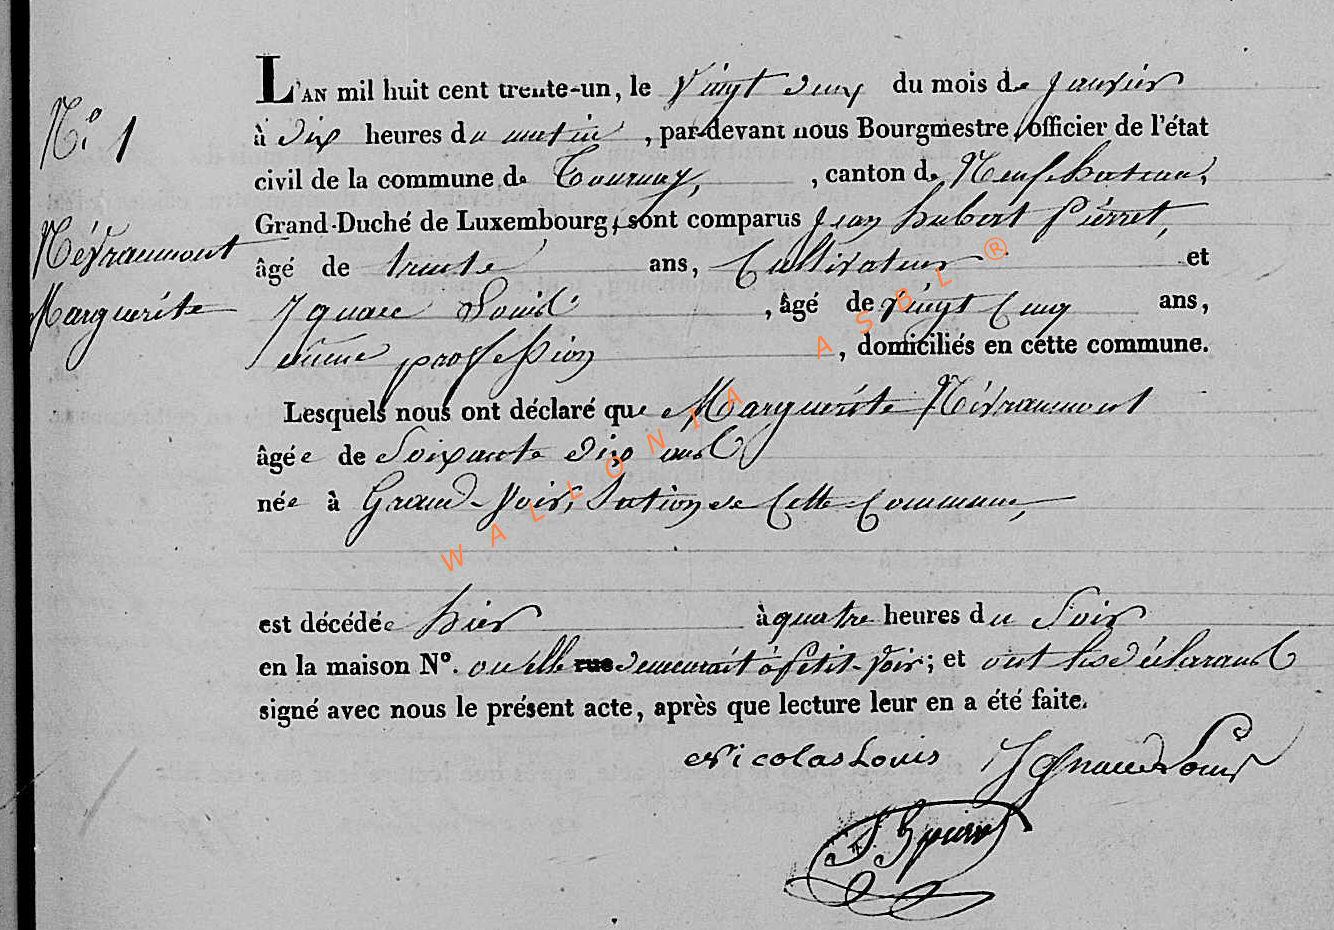 N° 1
Névraumont
Marguerite
L'AN mil huit cent trente-un, le vingt deux du mois de janvier
à dix heures du matin, par-devant nous Bourgmestre, officier de l'état
civil de la commune de Tournay, , canton de Neufchateau,
Grand-Duché de Luxembourg, sont comparus Jean hubert Pierret,
âgé de trente ans, Cultivateur et
Ignace Louis , âgé de vingt Cinq ans,
même profession , domiciliés en cette commune.
Lesquels nous ont déclaré que Marguerite Névraumont
âgée de Soixante dix ans
née à Grand-Voir, Section de Cette Commune,
est décédée hier à quatre heures du Soir
en la maison N°. ou elle rue demeurait à Petit-Voir; et ont les déclarans
signé avec nous le présent acte, après que lecture leur en a été faite.
Nicolas Louis Ignace Louis
WALLONIA ASBL ®